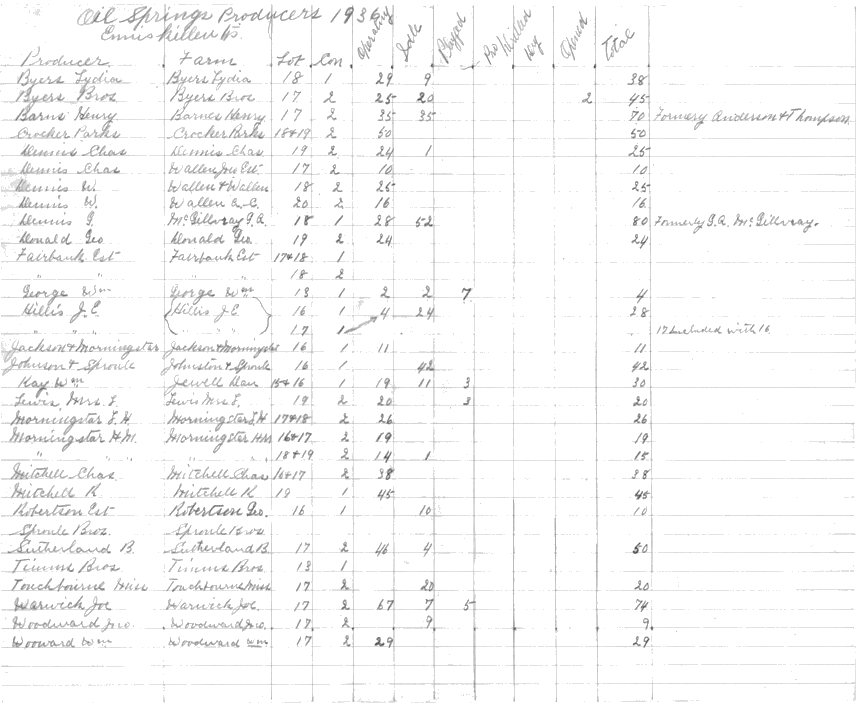 Oil Springs Producers 1936
Enniskillen Tts. Operating Idle Plugged Drilled Total
Producer Farm Lot Con
Byers Lydia Byers Lydia 18 1 29 9 38
Byers Bros Byers Bros 17 2 25 20 2 45
Barns Henry Barnes Henry 17 2 35 35 70 Formary Anderson & Thompson
Crocker Parks Crocker Prks 18&19 2 50 50
Dennis Chas Dennis Chas. 19 2 24 1 25
Dennis Chas Wallen Jno Est. 17 2 10 10
Dennis W. Wallen & Wallen 18 2 25 25
Dennis W. Wallen A.C. 20 2 16 16
Dennis G. McGillvray G.A. 18 1 28 52 80 Formerly G.A. McGillvray.
Donald Geo Donald Geo. 19 2 24 24
Fairbank Est Fairbank Est 17&18 1
" " 18 2
George Wm George Wm 13 1 2 2 7 4
Hillis J.E. Hillis J.E 16 1 4 24 28
" " " 17 1 17 Included with 16
Jackson & Morningstar Jackson & Morningstar 16 1 11 11
Johnson & Sproule Johnston & Sproule 16 1 42 42
Kay Wm Jewell Dan 15&16 1 19 11 3 30
Lewis Mrs. F Lewis Mrs F. 19 2 20 3 20
Morningstar L.H. Morningstar L.H 17&18 2 26 26
Morningstar H.M. Morningstar HM 16&17 2 19 19
" " " " " 18&19 2 14 1 15
Mitchell Chas. Mitchell Chas 16&17 2 38 38
Mitchell R Mitchell R 19 1 45 45
Robertson Est Robertson Geo. 16 1 10 10
Sproule Bros. Sproule Bros.
Sutherland B. Sutherland B. 17 2 46 4 50
Timms Bros Timms Bros. 13 1
Touchbourne Miss Touchbourne Miss 17 2 20 20
Warwick Joe Warwick Joe. 17 2 67 7 5 74
Woodward Jno. Woodward Jno. 17 2 9 9
Wooward Wm Woodward Wm 17 2 29 29